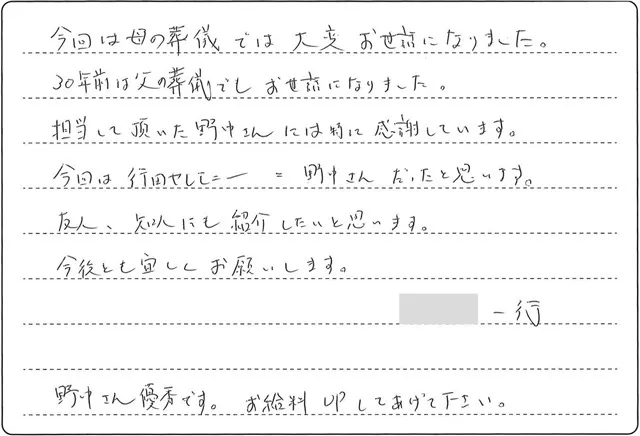 今回は母の葬儀では大変お世話になりました。
30年前は父の葬儀でもお世話になりました。
担当して頂いた野中さんには特に感謝しています。
今回は行田セレモニー = 野中さんだったと思います。
友人、知人にも紹介したいと思います。
今後とも宜しくお願いします。
一行
野中さん優秀です。お給料UPしてあげて下さい。